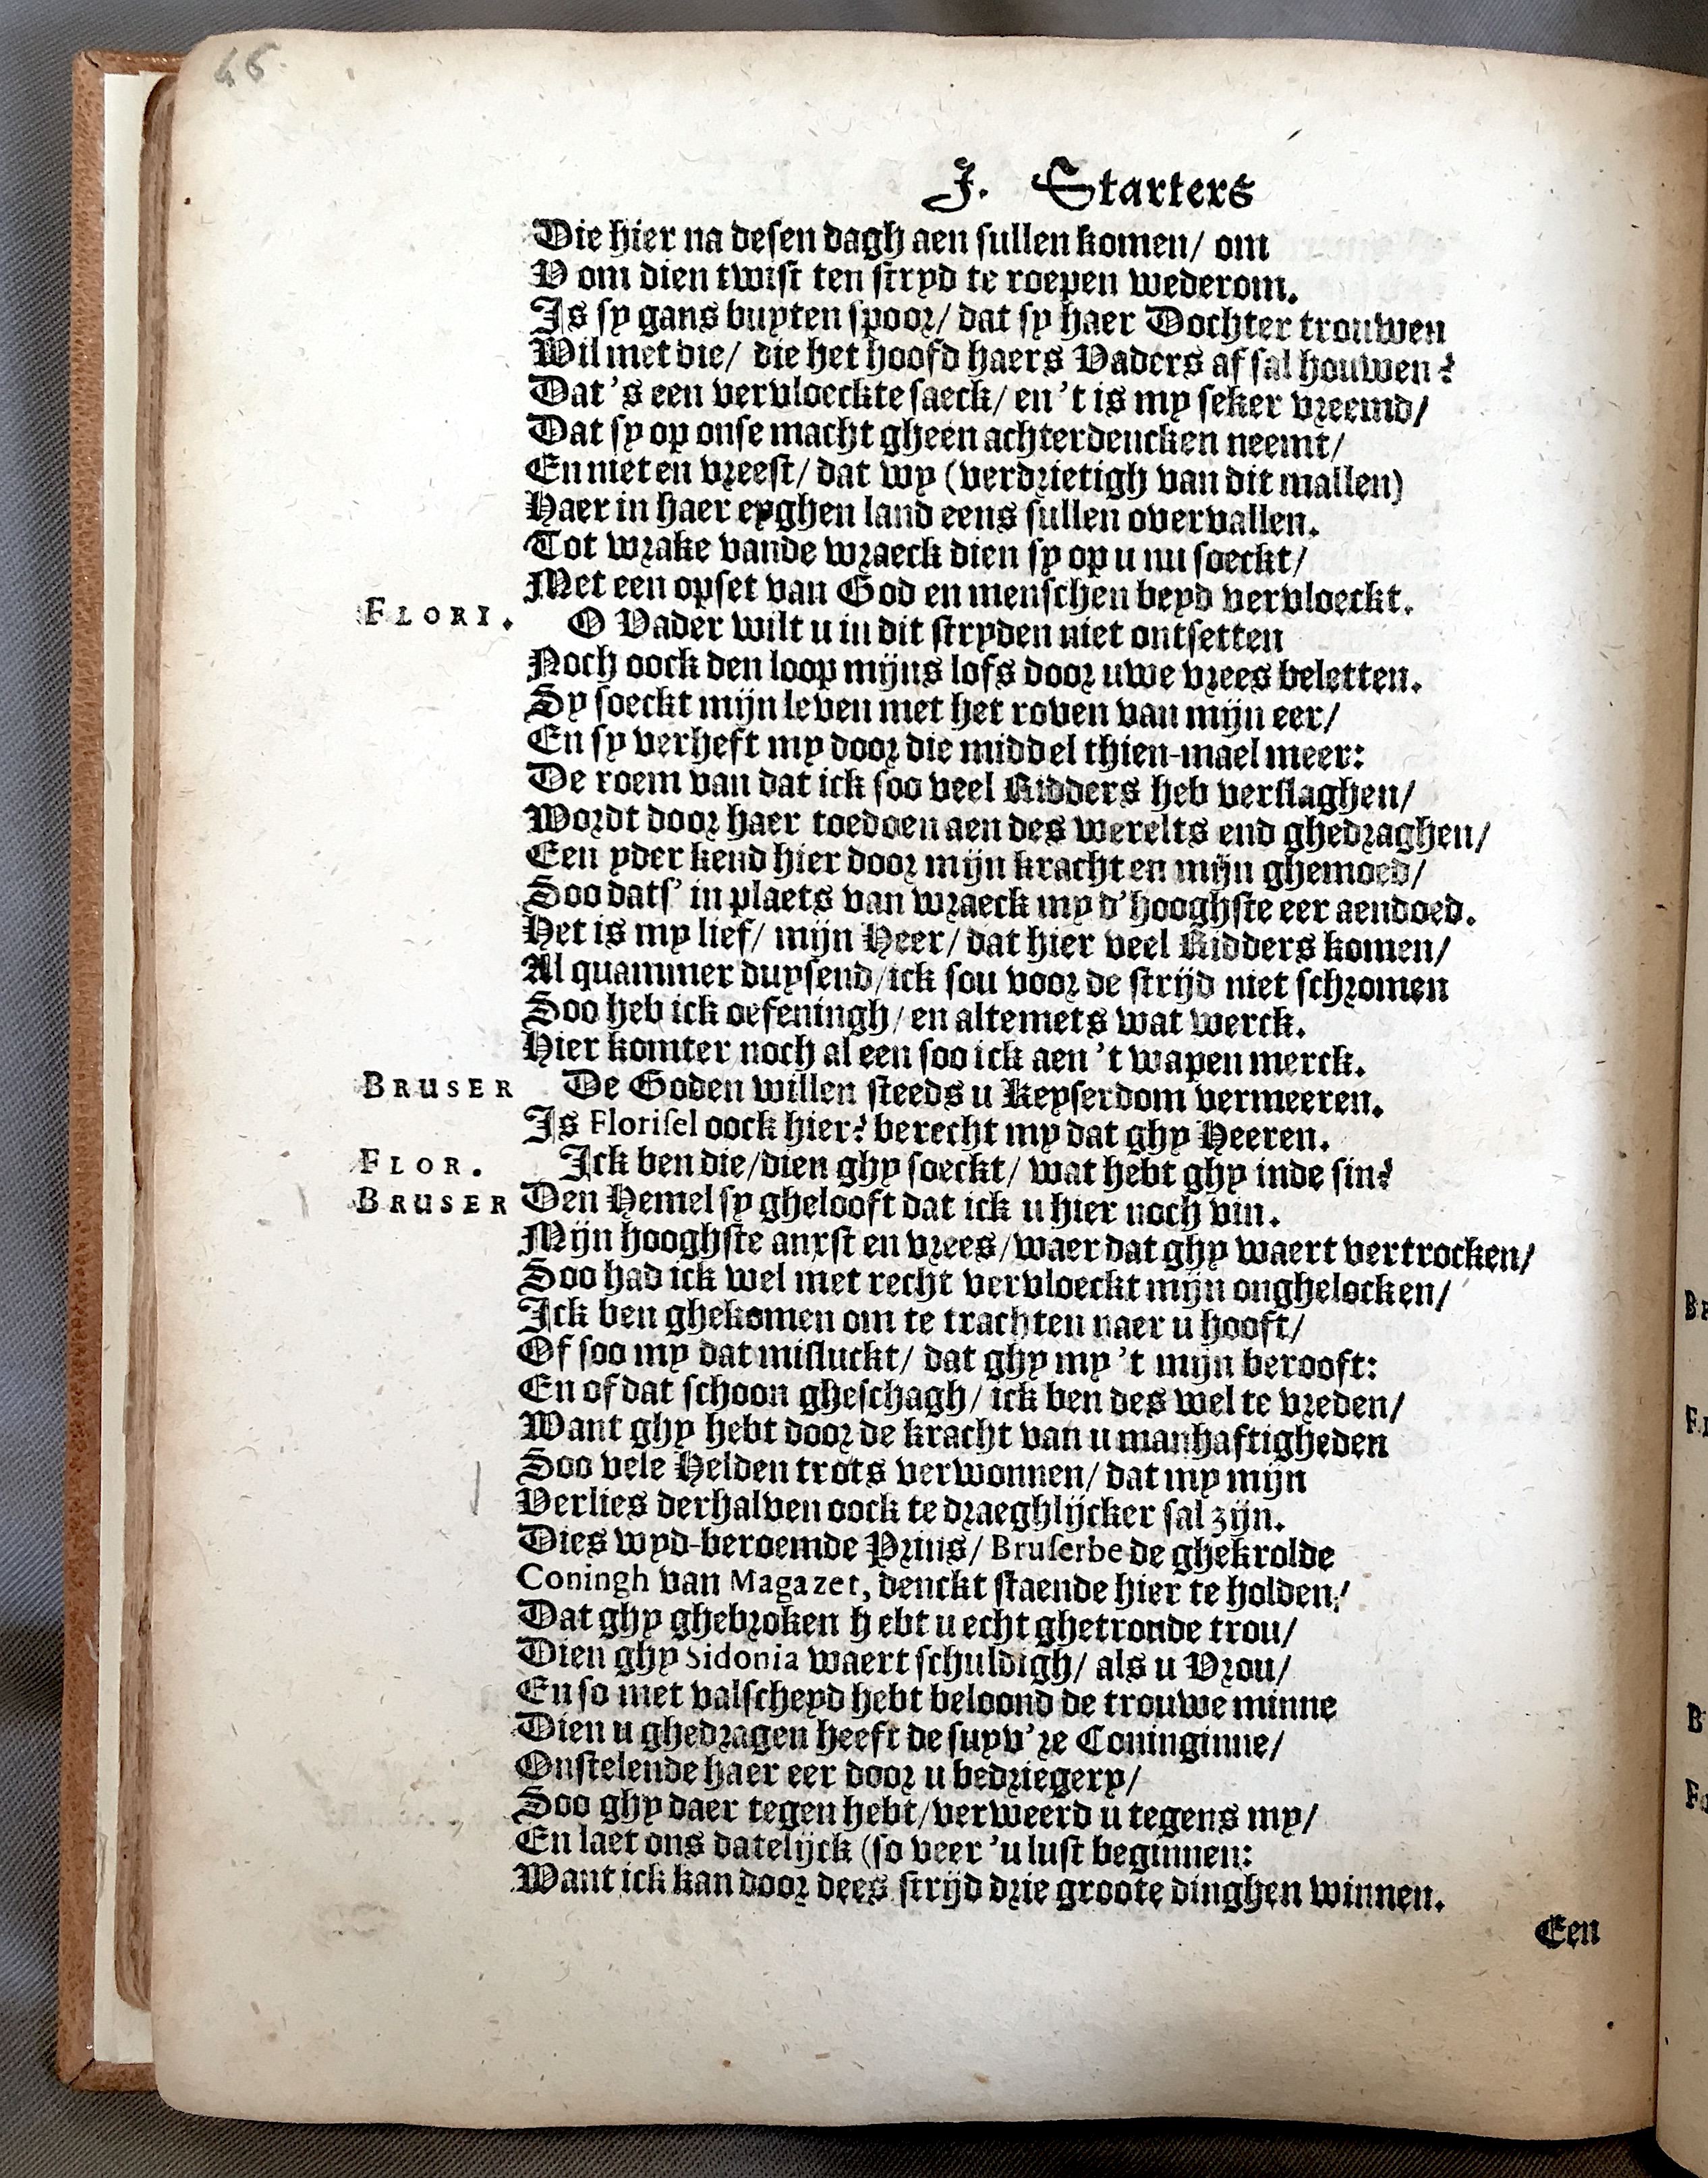 46.
J. Starters
Die hier na desen dagh aen sullen komen/ om
V om dien twist ten stryd te roepen wederom.
Is sy gans buyten spoor/ dat sy haer Dochter trouwen
Wil met die/ die het hoofd haers Vaders af sal houwen?
Dat's een vervloeckte saeck/ en 't is my seker vreemd/
Dat sy op onse macht gheen achterdencken neemt/
En niet en vreest/ dat wy (verdrietigh van dit mallen)
Haer in haer eyghen land eens sullen overvallen.
Tot wrake vande wraeck dien sy op u nu soeckt/
Met een opset van God en menschen beyd vervloeckt.
FLORI. O Vader wilt u in dit stryden niet ontsetten
Noch oock den loop mijns lofs door uwe vrees beletten.
Sy soeckt mijn leven met het roven van mijn eer/
En sy verheft my door die middel thien-mael meer:
De roem van dat ick soo veel Ridders heb verslaghen/
Wordt door haer toedoen aen des werelts end ghedraghen/
Een yder kend hier door mijn kracht en mijn ghemoed/
Soo dats' in plaets van wraeck my d'hooghste eer aendoed.
Het is my lief/ mijn Heer/ dat hier veel Ridders komen/
Al quammer duysend/ick sou voor de strijd niet schromen
Soo heb ick oefeningh/ en altemets wat werck.
Hier komter noch al een soo ick aen 't wapen merck.
BRUSER De Goden willen steeds u Keyserdom vermeeren.
Is Florisel oock hier? berecht my dat ghy Heeren.
FLOR. Ick ben die/dien ghy soeckt/ wat hebt ghy inde sin?
BRUSER Den Hemel sy ghelooft dat ick u hier noch vin.
Mijn hooghste anxst en vrees/waer dat ghy waert vertrocken/
Soo had ick wel met recht vervloeckt mijn onghelocken/
Ick ben ghekomen om te trachten naer u hooft/
Of soo my dat misluckt/ dat ghy my 't mijn berooft:
En of dat schoon gheschagh/ ick ben des wel te vreden/
Want ghy hebt door de kracht van u manhaftigheden
Soo vele Helden trots verwonnen/ dat my mijn
Verlies derhalven oock te draeghlijcker sal zijn.
Dies wyd-beroemde Prins/ Bruserbe de ghekrolde
Coningh van Magazet, denckt staende hier te holden/
Dat ghy ghebroken hebt u echt ghetronde trou/
Dien ghy Sidonia waert schuldigh/ als u Vrou/
En so met valscheyd hebt beloond de trouwe minne
Dien u ghedragen heeft de suyv're Coninginne/
Onstelende haer eer door u bedriegery/
Soo ghy daer tegen hebt/verweerd u tegens my/
En laet ons datelijck (so veer 'u lust beginnen:
Want ick kan door dees strijd drie groote dinghen winnen.
Een